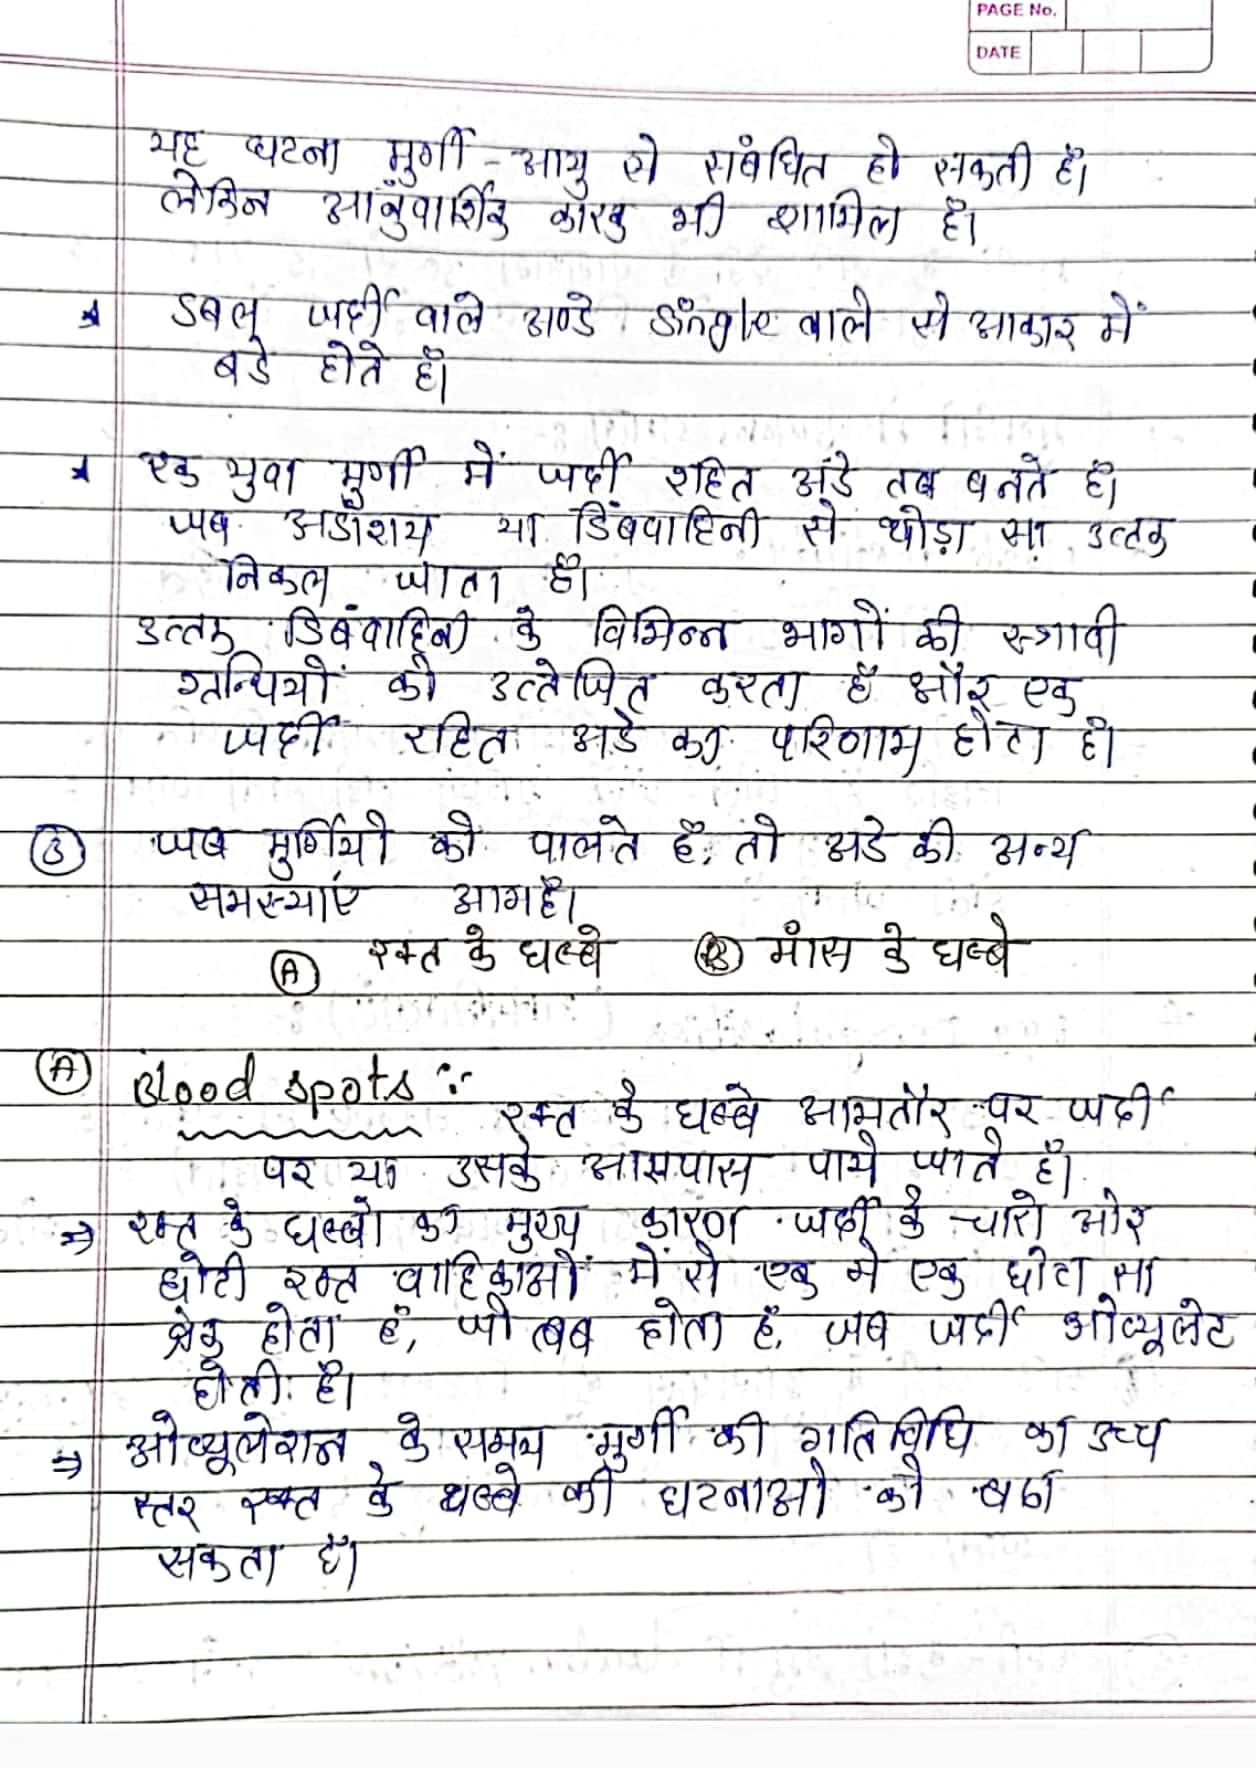 PAGE No.
DATE
यह घटना मुर्गी - आयु से संबंधित हो सकती है।
लेकिन आंनुवार्शिक कारक भी शामिल है।
★ डबल जर्दी वाले अण्डे Single वाले से आकार में
बडे होते है।
★ एक युवा मुर्गी में जर्दी रहित अंडे तब बनते है।
जब अडांशय या डिंबवाहिनी से थोड़ा सा उत्तक
निकल जाता है।
उत्तक डिबंवाहिनी के विभिन्न भागों की स्त्रावी
ग्रन्थियों को उत्तेजित करता है और एक
जर्दी रहित अडे का परिणाम होता है।
③ जब मुर्गियो को पालते है, तो अडे की अन्य
समस्याएं आम है।
Ⓐ रक्त के धब्बे Ⓑ मांस के धब्बे
Ⓐ Blood spots :- रक्त के धब्बे आमतौर पर जर्दी
पर या उसके आसपास पाये जाते है।
⇒ रक्त के धब्बो का मुख्य कारण जर्दी के चारो ओर
छोटी रक्त वाहिकाओं में से एक मे एक छोटा सा
ब्रेक होता है, जो तब होता है, जब जर्दी ओव्यूलेट
होती है।
⇒ ओव्यूलेशन के समय मुर्गी की गतिविधि का उच्च
स्तर रक्त के धब्बे की घटनाओ को बढा
सकता है।